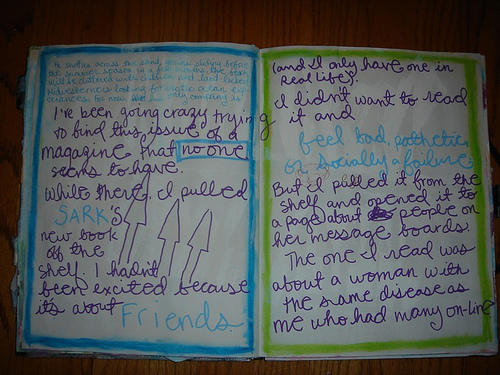 He shuttles across the sand,
I've been going crazy trying
to find this issue of a
magazine that no one
seems to have.
While there, I pulled
SARK's
new book
off the
shelf. I hadn't
been excited because
it's about Friends.
(and I only have one in
Real life).
I didn't want to read
it and
feel bad, pathetic,
or socially a failure.
But I pulled it from the
shelf and opened it to
a page about people on
her message boards.
The one I read was
about a woman with
the same disease as
me who had many on-line